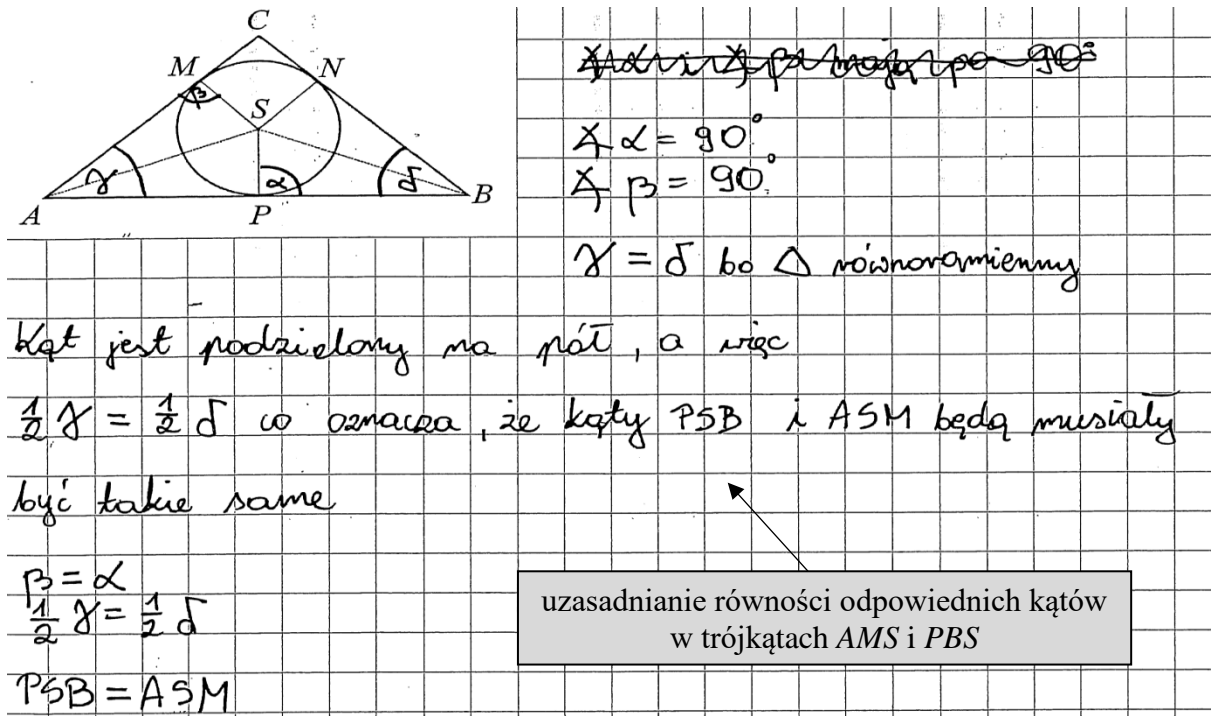 C
M
N
β
S
γ
α
δ
A
P
B
∢α i ∢β mają po 90°
∢ α = 90°
∢ β = 90°
γ = δ bo △ równoramienny
Kąt jest podzielony na pół, a więc
½ γ = ½ δ co oznacza, że kąty PSB i ASM będą musiały
być takie same
β = α
½ γ = ½ δ
PSB = ASM
uzasadnianie równości odpowiednich kątów
w trójkątach AMS i PBS